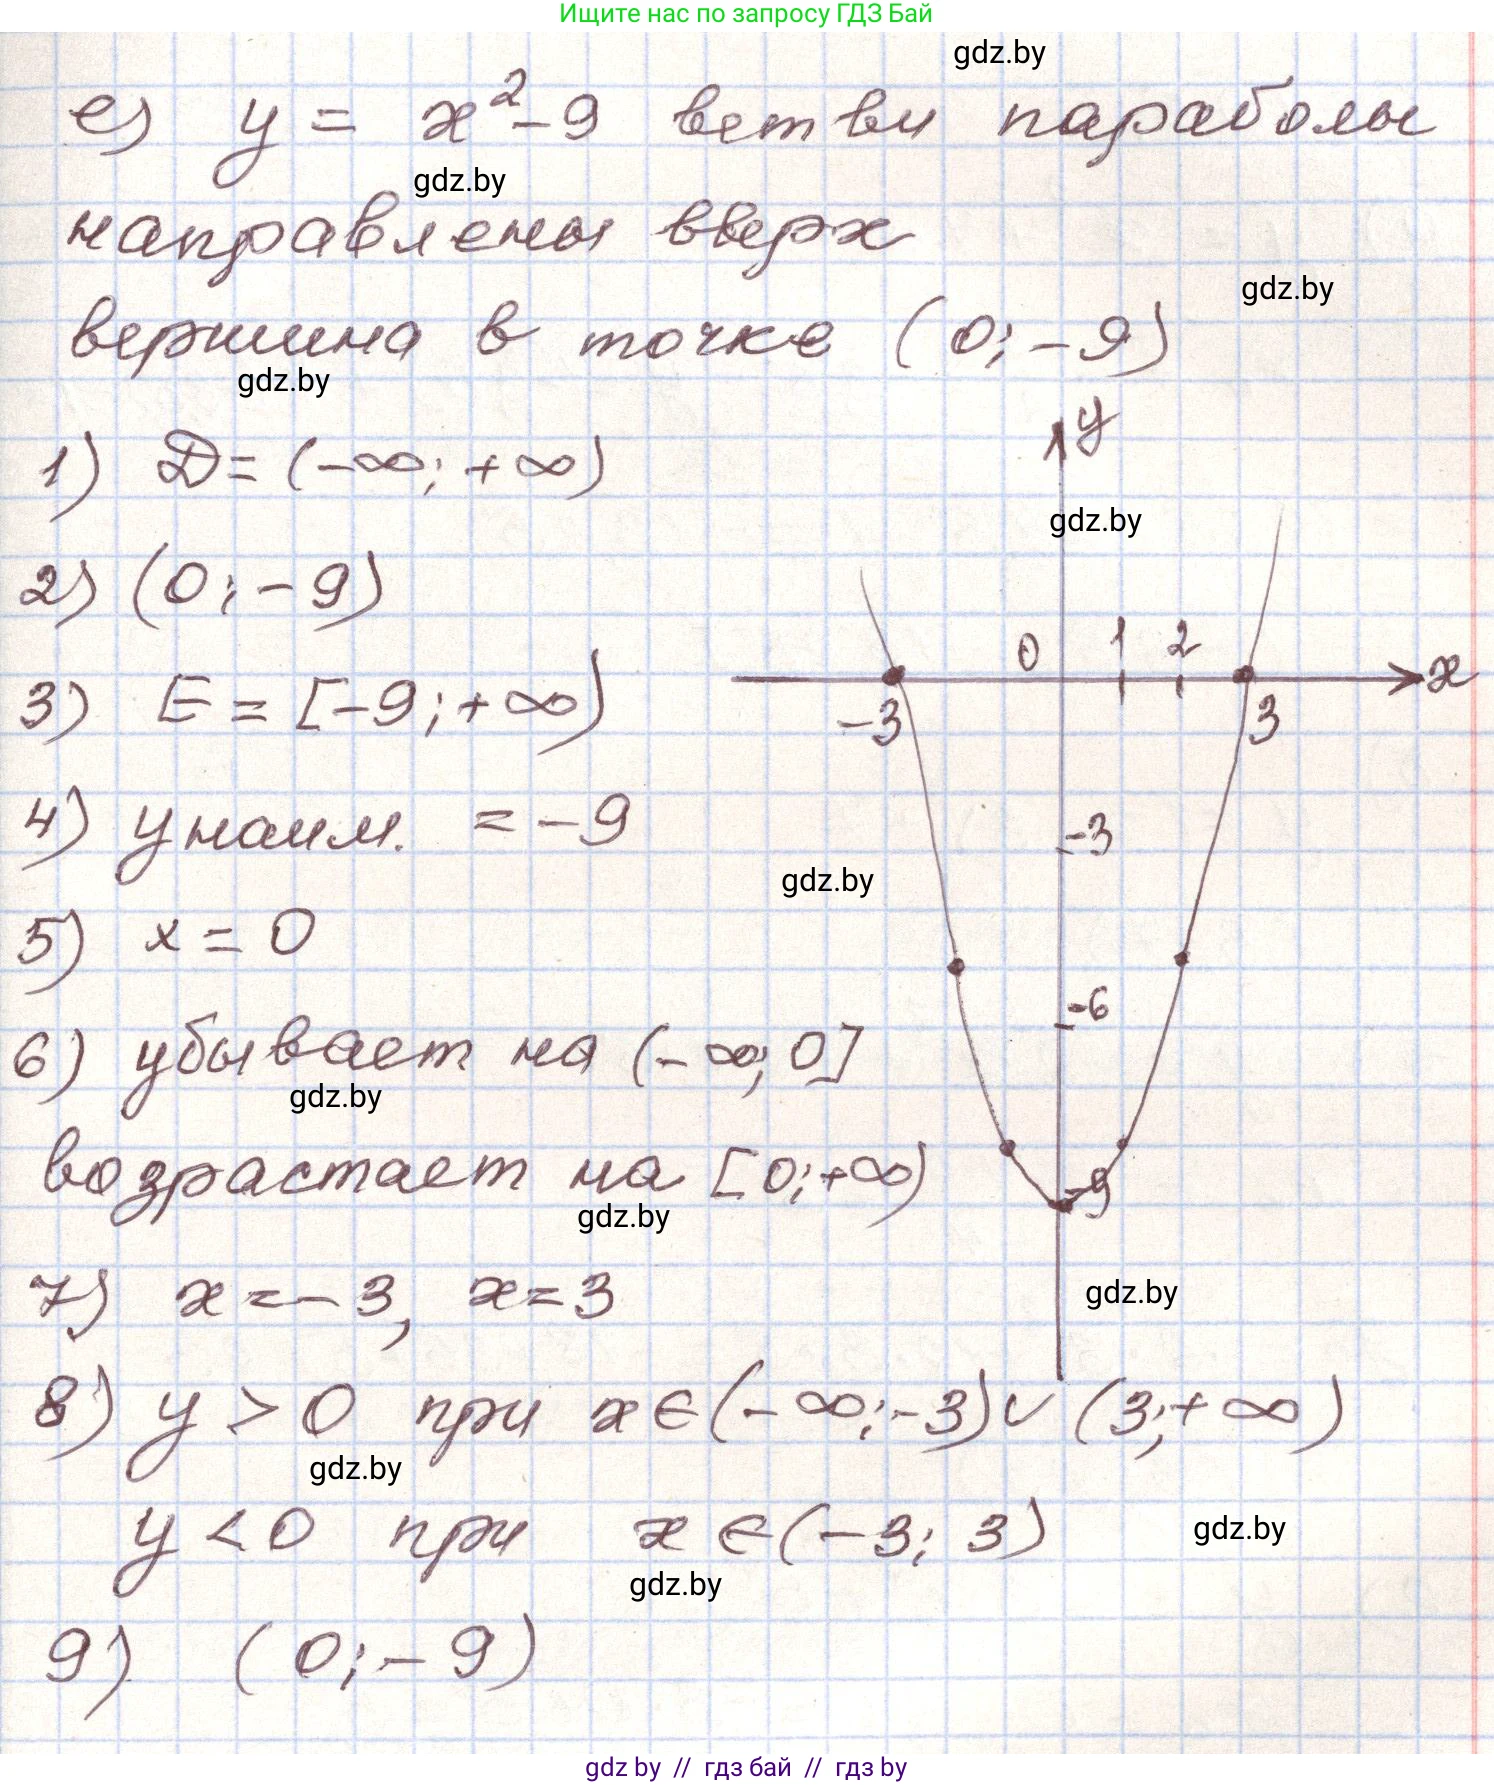 Ищите нас по запросу ГДЗ Бай
gdz.by
е) y = x² - 9 ветви параболы
gdz.by
направлены вверх
gdz.by
вершина в точке (0; -9)
gdz.by
y
1) D = (-∞; +∞)
gdz.by
2) (0; -9)
0 1 2 x
3) E = [-9; +∞)
-3 3
4) y наим. = -9
-3
gdz.by
5) x = 0
-6
6) убывает на (-∞; 0]
gdz.by
возрастает на [0; +∞)
-9
gdz.by
7) x = -3, x = 3
gdz.by
8) y > 0 при x ∈ (-∞; -3) ∪ (3; +∞)
gdz.by
y < 0 при x ∈ (-3; 3)
gdz.by
gdz.by
9) (0; -9)
gdz.by // гдз бай // gdz.by